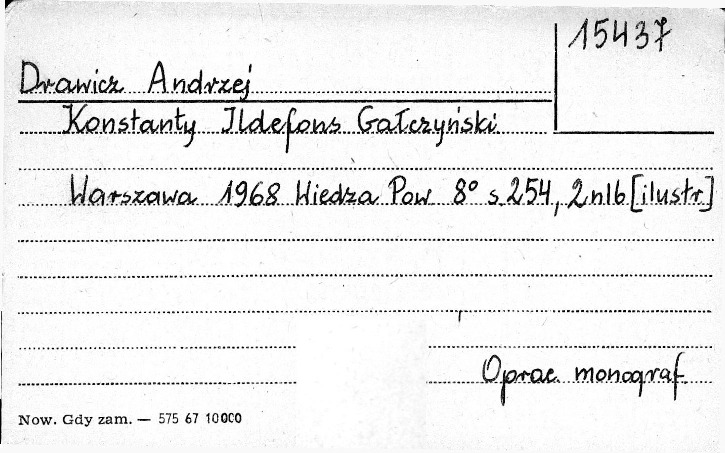 15437
Drawicz Andrzej
Konstanty Ildefons Gałczyński
Warszawa 1968 Wiedza Pow 8° s 254, 2 nlb [ilustr]
Oprac. monograf.
Now. Gdy zam. — 575 67 10000